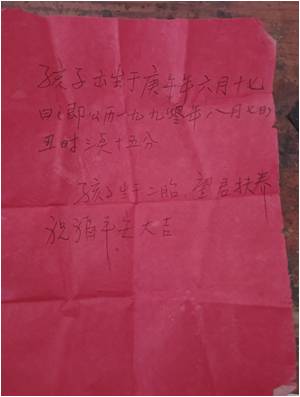 孩子出生于庚午年六月十七
日(即公历一九九零年八月七日)
丑时三点十五分
孩子生于二胎.望君扶养
祝福平安大吉